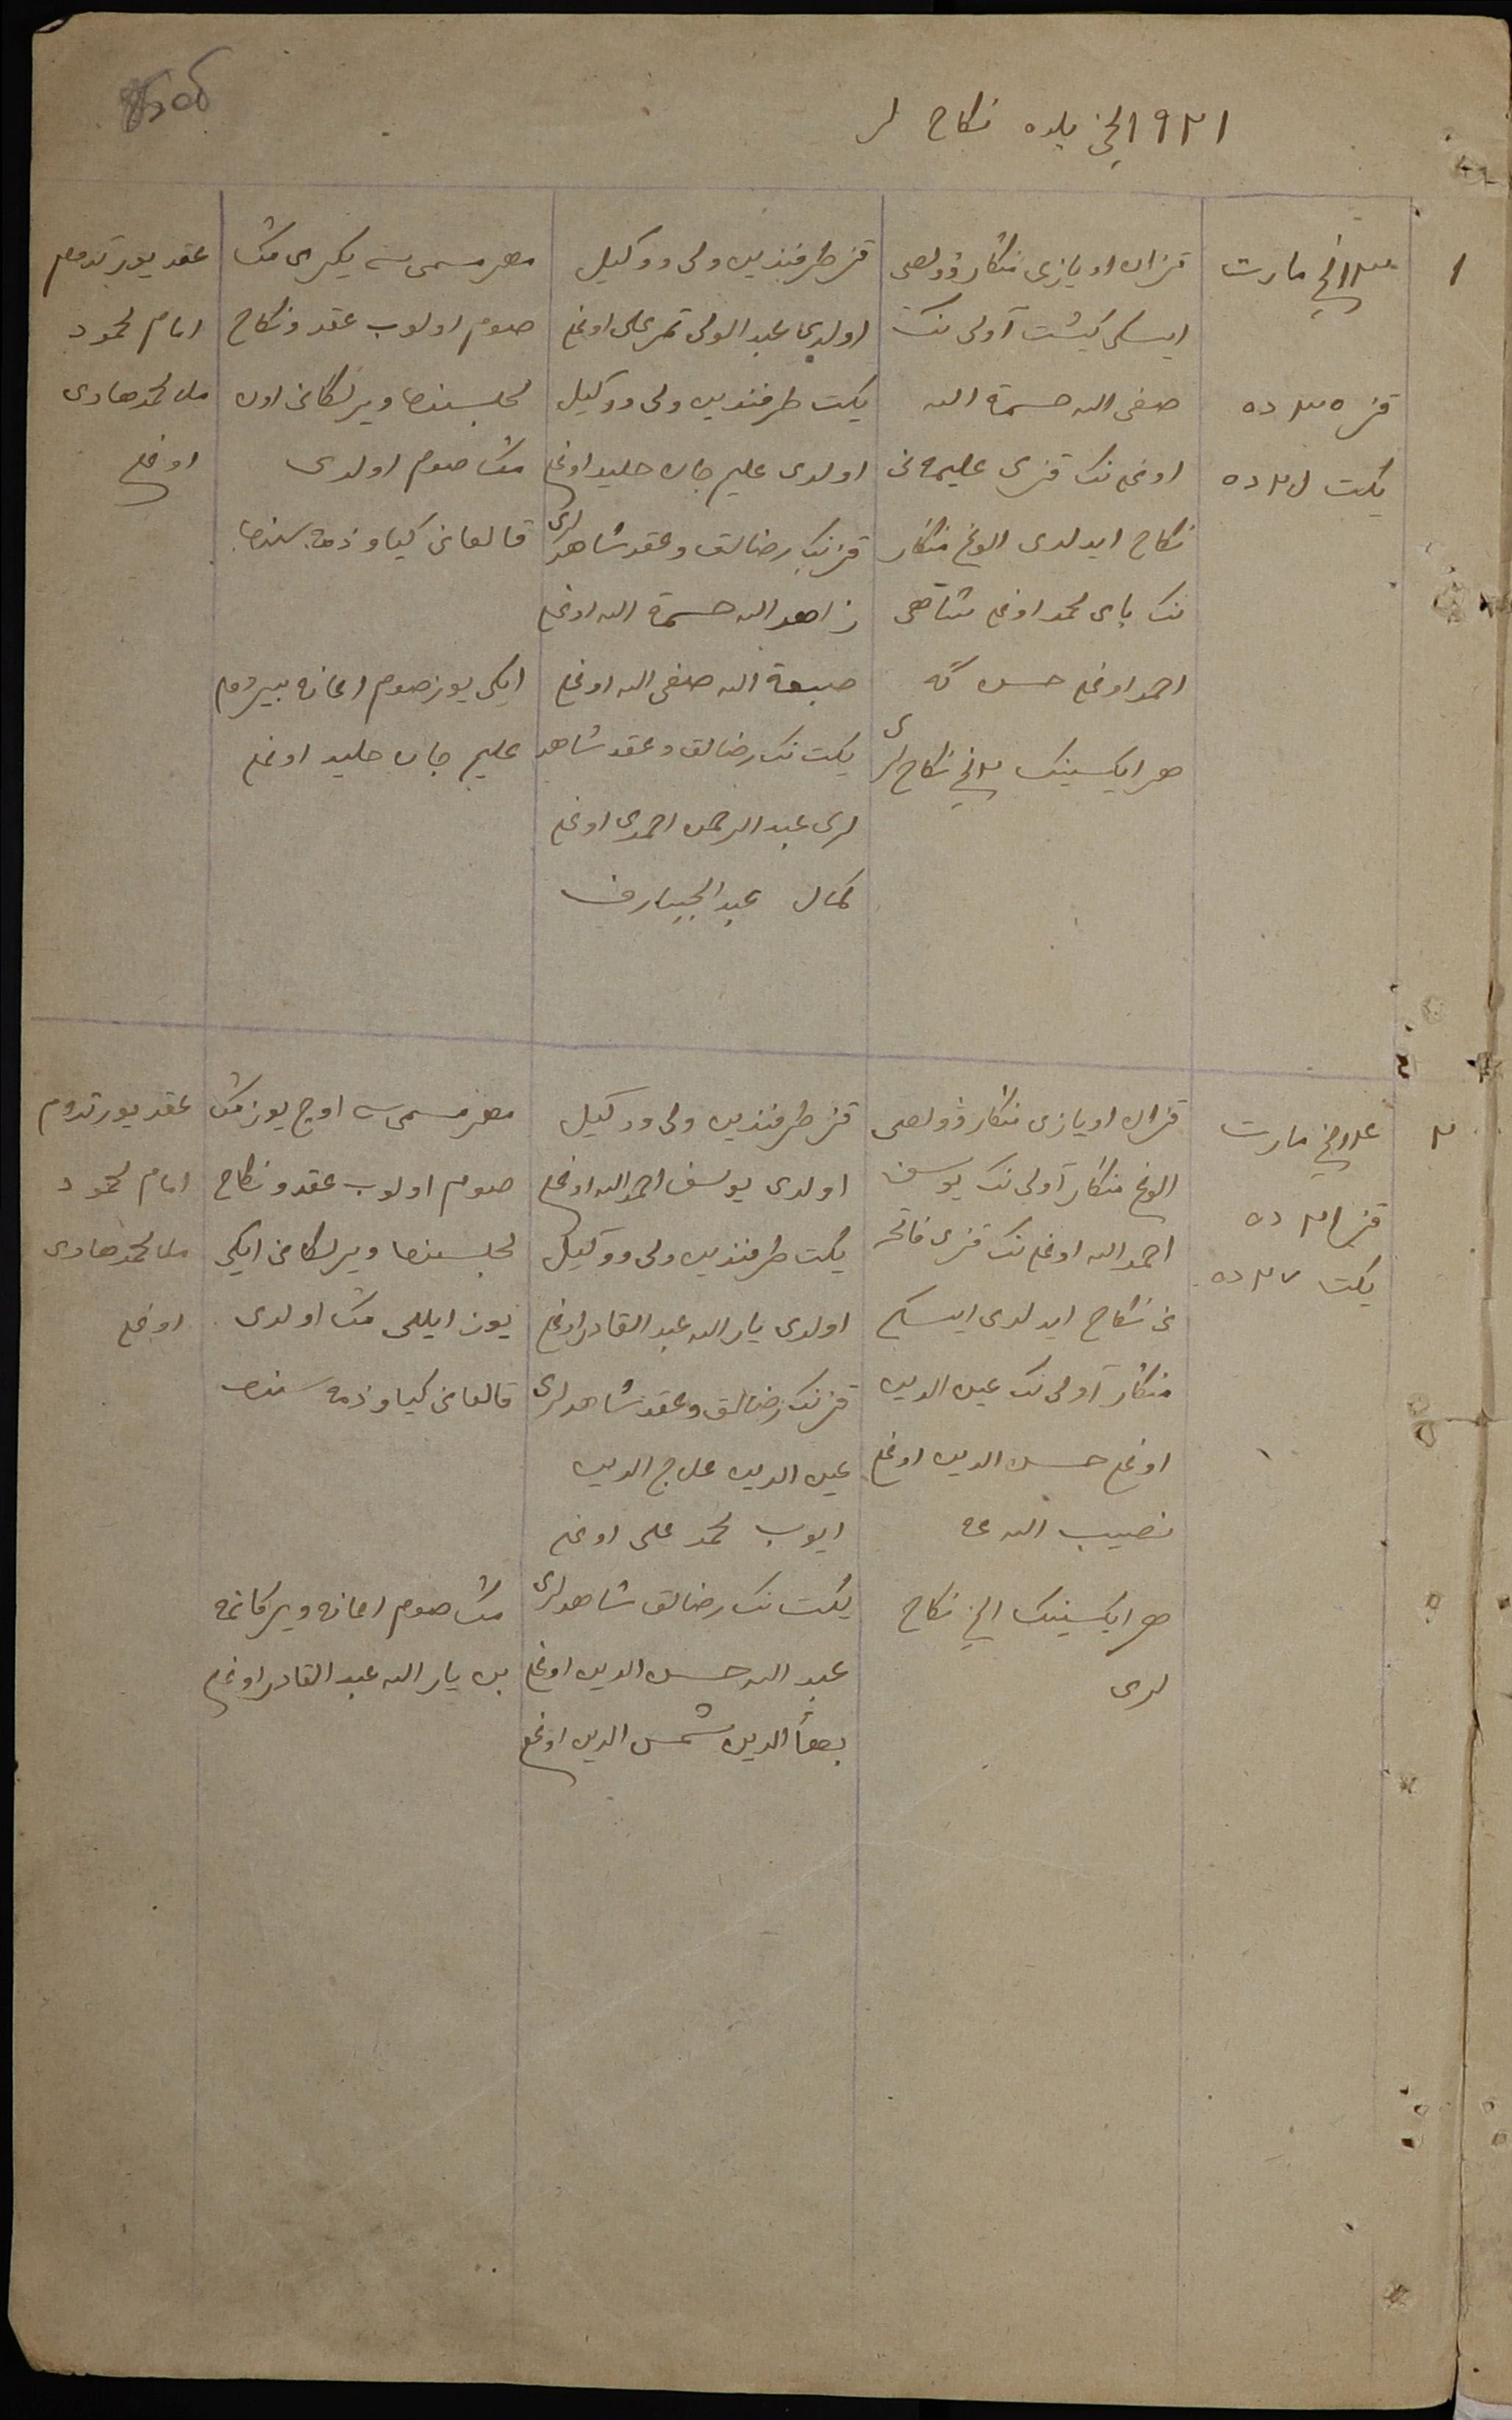 ١٩٢١ نچی یلده نکاح لر
١
١٣ نچی مارت
قز ٣٥ ده
یکت ٢٥ ده
قزان اویازی منکار ۋولصی
ایسکی کیشت آولی ننک
صفی الله حسمة الله
اوغلی ننک قزی علیمه نی
نکاح ایدلدی الوغ منکار
ننک بای محمد اوغلی
احمد اوغلی حسن گه
هر ایکیسینک ٢ نچی نکاح لری
قز طرفندین ولی و وکیل
اولدی عبد الولی قمر علی اوغلی
یکت طرفندین ولی و وکیل
اولدی علیم جان حلید اوغلی
قز ننک رضالق و عقد شاهدلری
زاهد الله حسمة الله اوغلی
صبغة الله صفی الله اوغلی
یکت ننک رضالق و عقد شاهد
لری عبد الرحمن احمدی اوغلی
کمال عبد الجبارف
مهر مسمی سی یکرمی منک
صوم اولوب عقد و نکاح
مجلسنده ویرلگانی اون
منک صوم اولدی
قالغانی کیاو ذمه سنده
ایکی یوز صوم اعانه بیردم
علیم جان حلید اوغلی
عقد یورتدم
امام محمود
ملا محمدهادی
اوغلی
٢
٢٤ نچی مارت
قز ٢١ ده
یکت ٢٧ ده
قزان اویازی منکار ۋولصی
الوغ منکار آولی ننک یوسف
احمد الله اوغلی ننک قزی فاتحه
نی نکاح ایدلدی ایسکی
منکار آولی ننک عین الدین
اوغلی حسن الدین اوغلی
نصیب الله غه
هر ایکیسینک ١ نچی نکاح
لری
قز طرفندین ولی و وکیل
اولدی یوسف احمد الله اوغلی
یکت طرفندین ولی و وکیل
اولدی یار الله عبد القادر اوغلی
قز ننک رضالق و عقد شاهدلری
عین الدین علاج الدین
ایوب محمد علی اوغلی
یکت ننک رضالق شاهدلری
عبد الله حسن الدین اوغلی
بهاء الدین شمس الدین اوغلی
مهر مسمی سی اوچ یوز منک
صوم اولوب عقد و نکاح
مجلسنده ویرلگانی ایکی
یوز ایللی منک اولدی
قالغانی کیاو ذمه سنده
منک صوم اعانه ویرگانمه
من یار الله عبد القادر اوغلی
عقد یورتدم
امام محمود
ملا محمدهادی
اوغلی